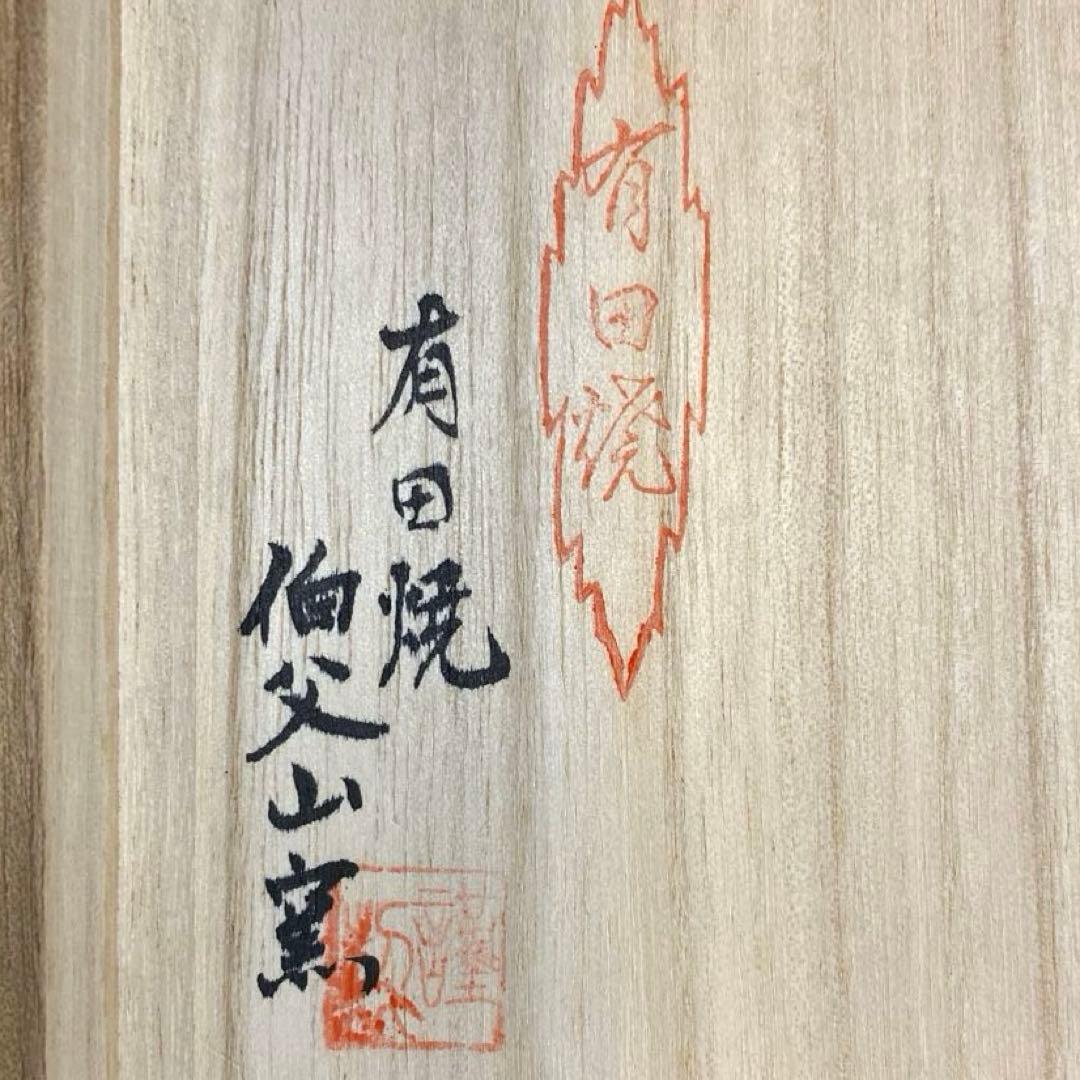 有田焼
有田焼
伯父山窯
謹